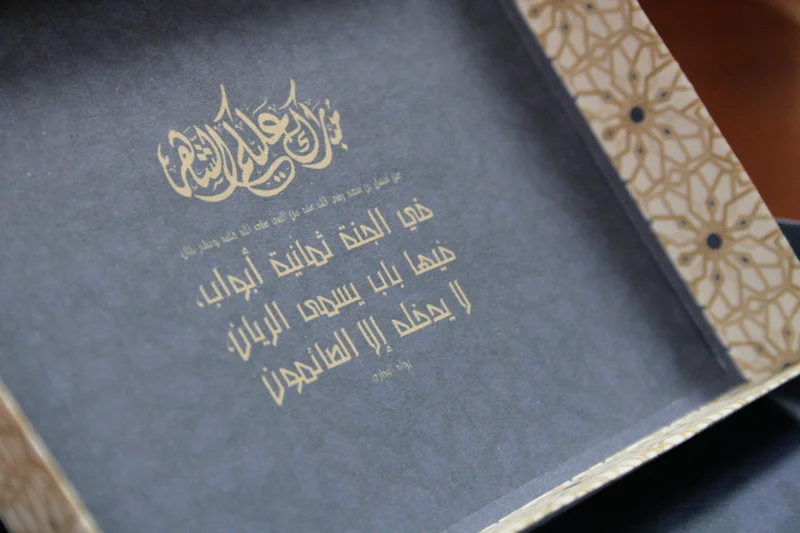 مبارك عليكم الشهر
عن سهل بن سعد رضي الله عنه عن النبي صلى الله عليه وسلم قال:
في الجنة ثمانية أبواب،
فيها باب يسمى الريان،
لا يدخله إلا الصائمون
رواه البخاري